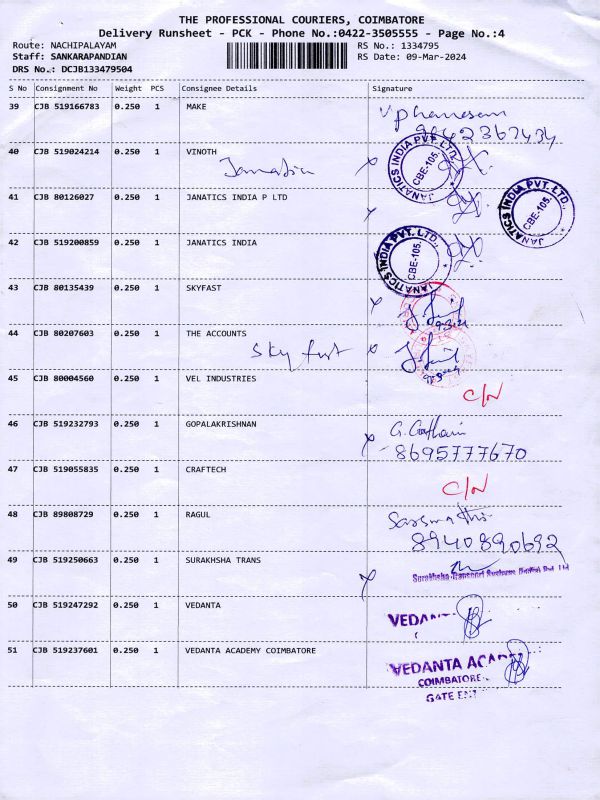 THE PROFESSIONAL COURIERS, COIMBATORE
Delivery Runsheet - PCK - Phone No.:0422-3505555 - Page No.:4
Route: NACHIPALAYAM RS No.: 1334795
Staff: SANKARAPANDIAN RS Date: 09-Mar-2024
DRS No.: DCJB133479504
S No Consignment No Weight PCS Consignee Details Signature
39 CJB 519166783 0.250 1 MAKE
40 CJB 519024214 0.250 1 VINOTH
JANATICS INDIA PVT. LTD.,
CBE-105.
41 CJB 80126027 0.250 1 JANATICS INDIA P LTD
JANATICS INDIA PVT. LTD.,
CBE-105.
42 CJB 519200859 0.250 1 JANATICS INDIA
JANATICS INDIA PVT. LTD.,
CBE-105.
43 CJB 80135439 0.250 1 SKYFAST
44 CJB 80207603 0.250 1 THE ACCOUNTS
Sky fast
45 CJB 80004560 0.250 1 VEL INDUSTRIES
C/N
46 CJB 519232793 0.250 1 GOPALAKRISHNAN
8695777670
47 CJB 519055835 0.250 1 CRAFTECH
C/N
48 CJB 89808729 0.250 1 RAGUL
8940890692
49 CJB 519250663 0.250 1 SURAKHSHA TRANS
Surakhsha Transport Business (India) Pvt. Ltd
50 CJB 519247292 0.250 1 VEDANTA
VEDANTA
51 CJB 519237601 0.250 1 VEDANTA ACADEMY COIMBATORE
VEDANTA ACAD
COIMBATORE
GATE ENT